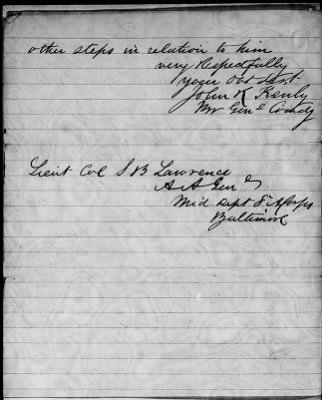 other steps in relation to him
very Respectfully
your Obt Servt
John R Kenly
Br Genl Comdg
Lieut Col S B Lawrence
A A Genl
Mid Dept 8" A Corps
Baltimore